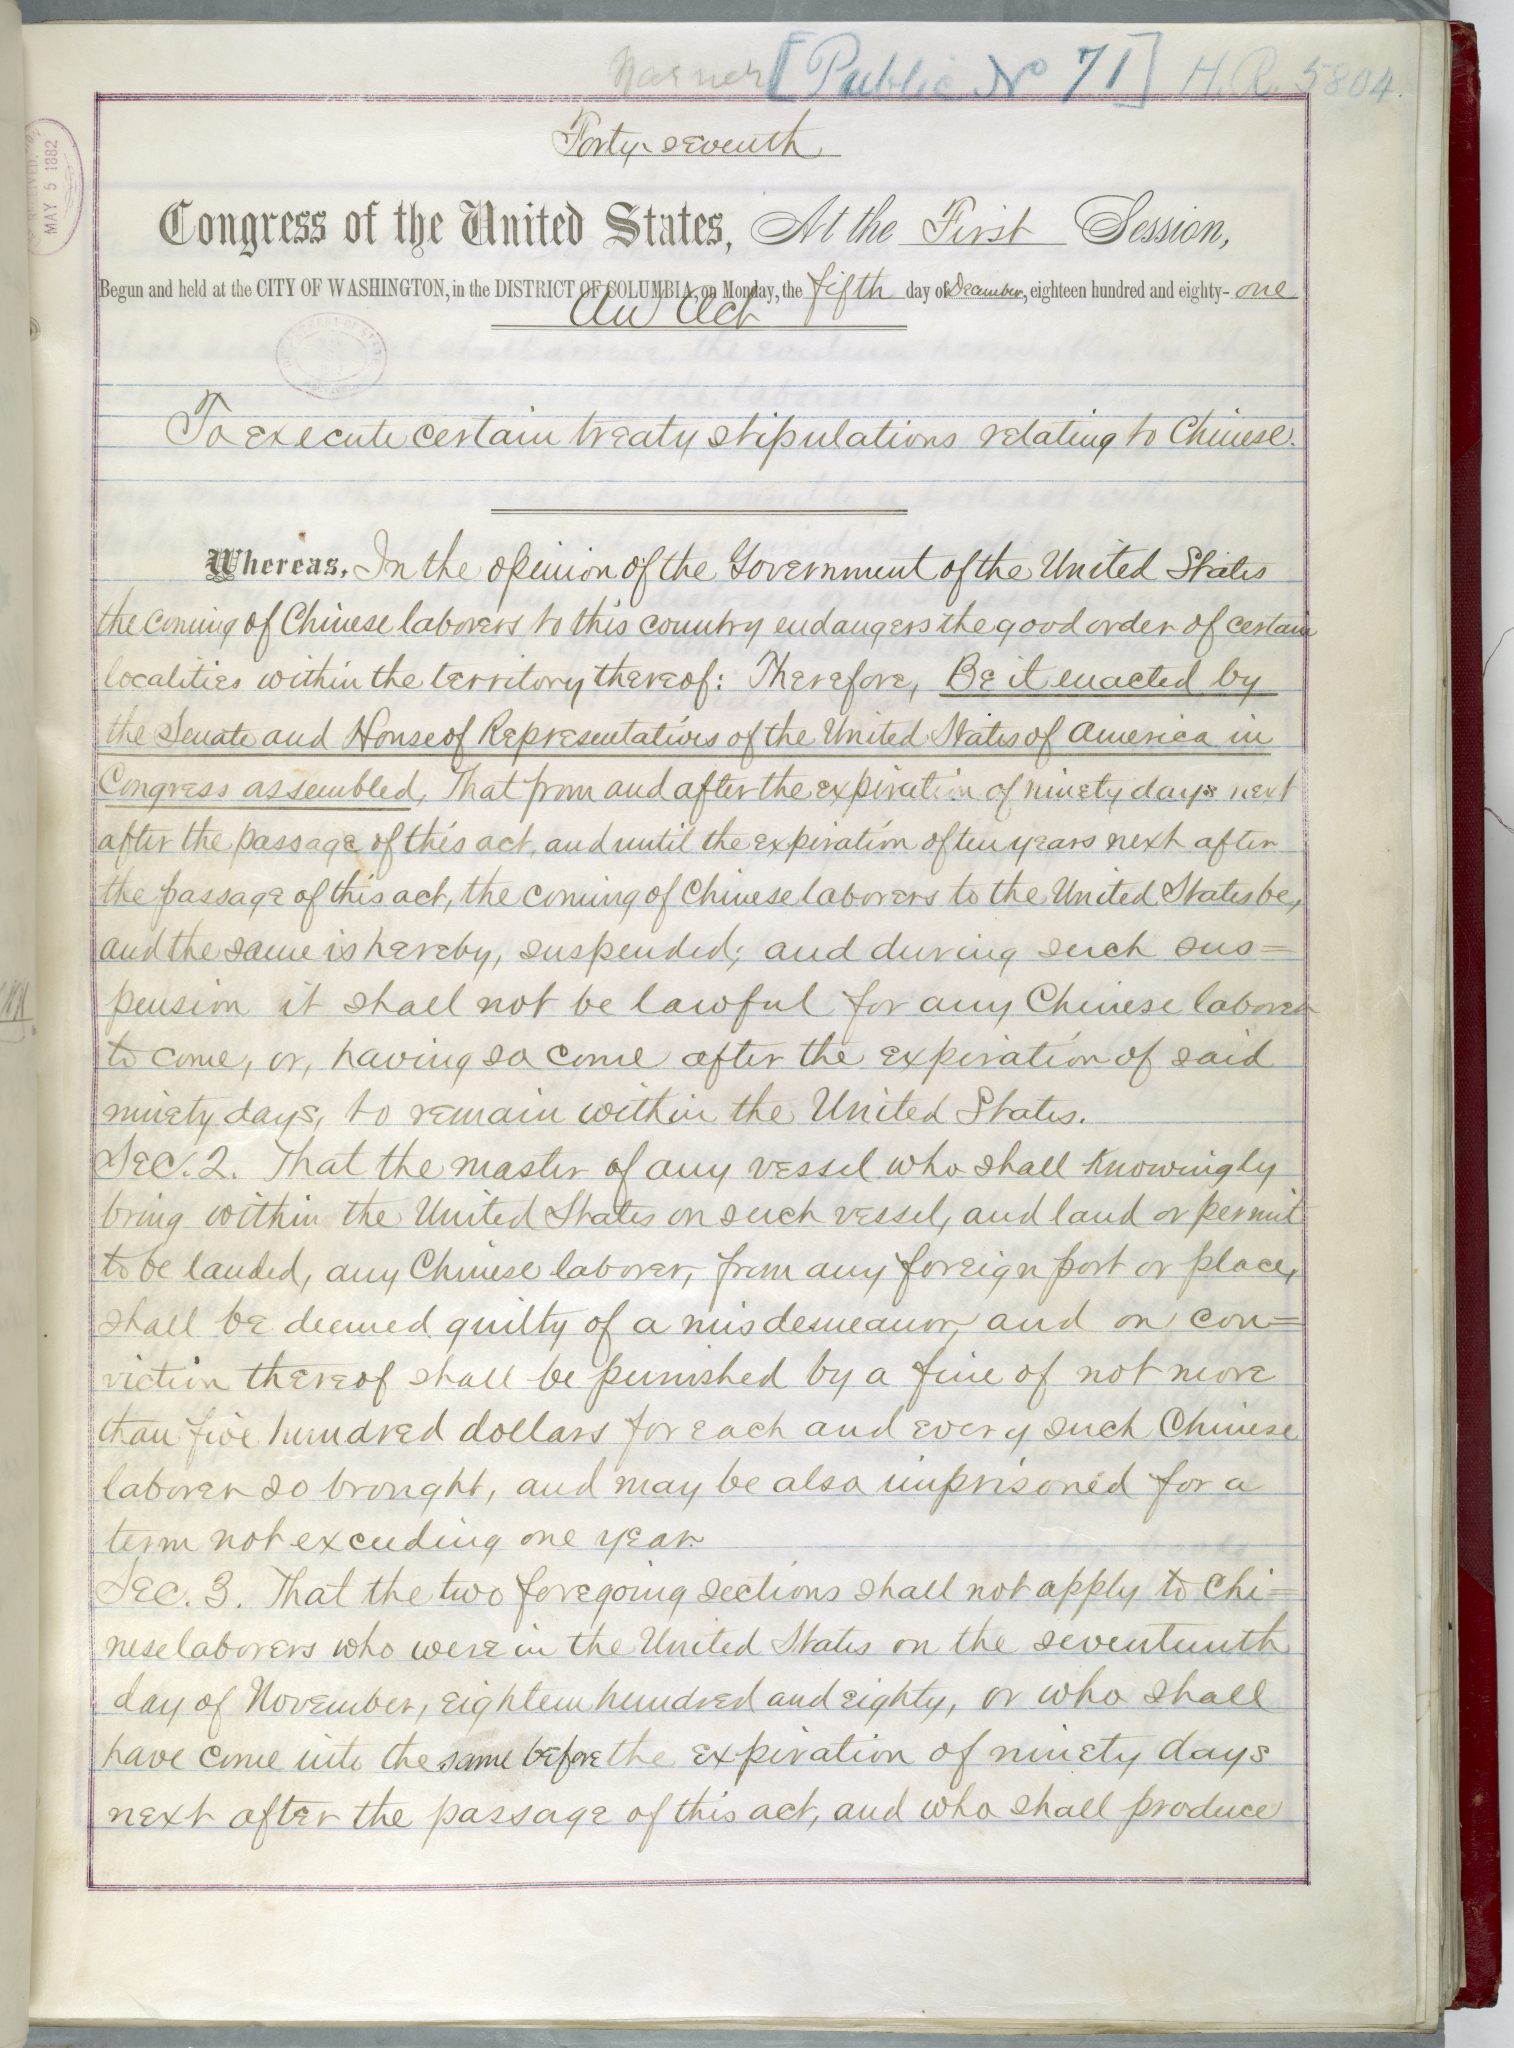 Warner [Public No 71] H.R. 5804.
MAY 5 1882
Forty-seventh
Congress of the United States, At the First Session,
Begun and held at the CITY OF WASHINGTON, in the DISTRICT OF COLUMBIA, on Monday, the fifth day of December, eighteen hundred and eighty-one
An Act
To execute certain treaty stipulations relating to Chinese.
Whereas, In the opinion of the Government of the United States
the coming of Chinese laborers to this country endangers the good order of certain
localities within the territory thereof: Therefore, Be it enacted by
the Senate and House of Representatives of the United States of America in
Congress assembled, That from and after the expiration of ninety days next
after the passage of this act, and until the expiration of ten years next after
the passage of this act, the coming of Chinese laborers to the United States be,
and the same is hereby, suspended; and during such sus=
pension it shall not be lawful for any Chinese laborer
to come, or, having so come after the expiration of said
ninety days, to remain within the United States.
Sec. 2. That the master of any vessel who shall knowingly
bring within the United States on such vessel, and land or permit
to be landed, any Chinese laborer, from any foreign port or place,
shall be deemed guilty of a misdemeanor, and on con=
viction thereof shall be punished by a fine of not more
than five hundred dollars for each and every such Chinese
laborer so brought, and may be also imprisoned for a
term not exceeding one year.
Sec. 3. That the two foregoing sections shall not apply to Chi=
nese laborers who were in the United States on the seventeenth
day of November, eighteen hundred and eighty, or who shall
have come into the same before the expiration of ninety days
next after the passage of this act, and who shall produce